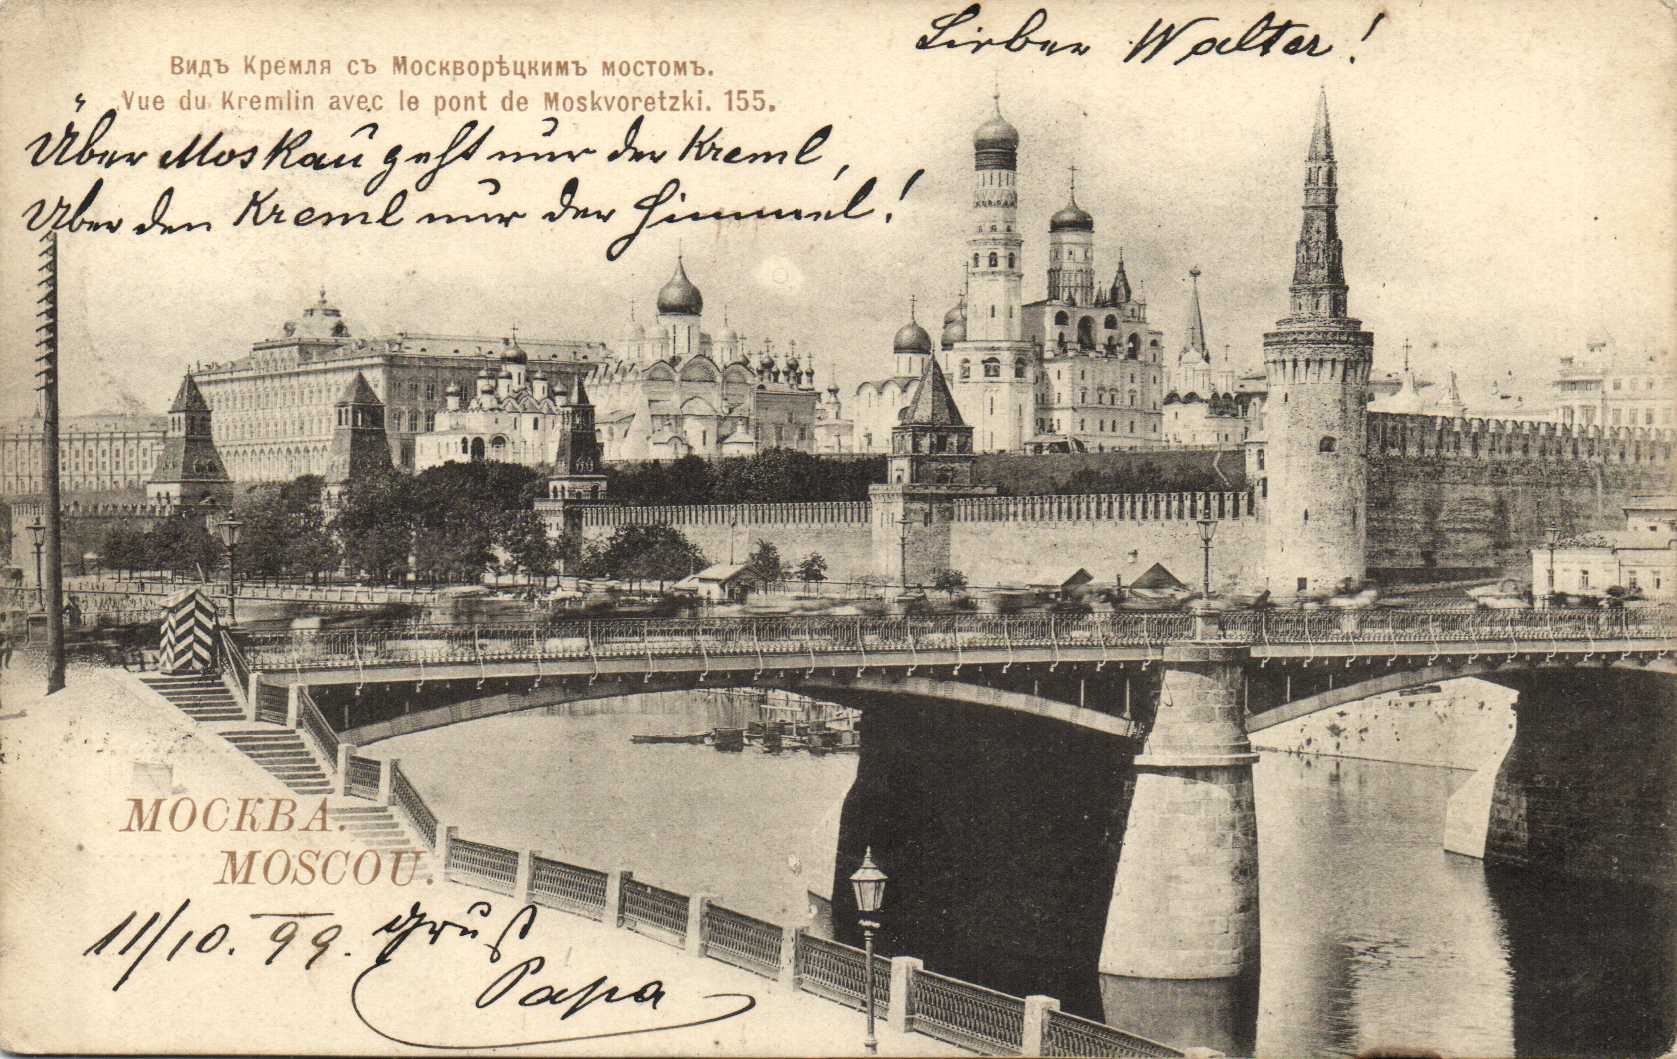 Lieber Walter!
Видъ Кремля съ Москворѣцкимъ мостомъ.
Vue du Kremlin avec le pont de Moskvoretzki. 155.
Über Moskau geht nur der Kreml,
Über den Kreml nur der Himmel!
МОСКВА.
MOSCOU.
11/10. 99. Gruß
Papa